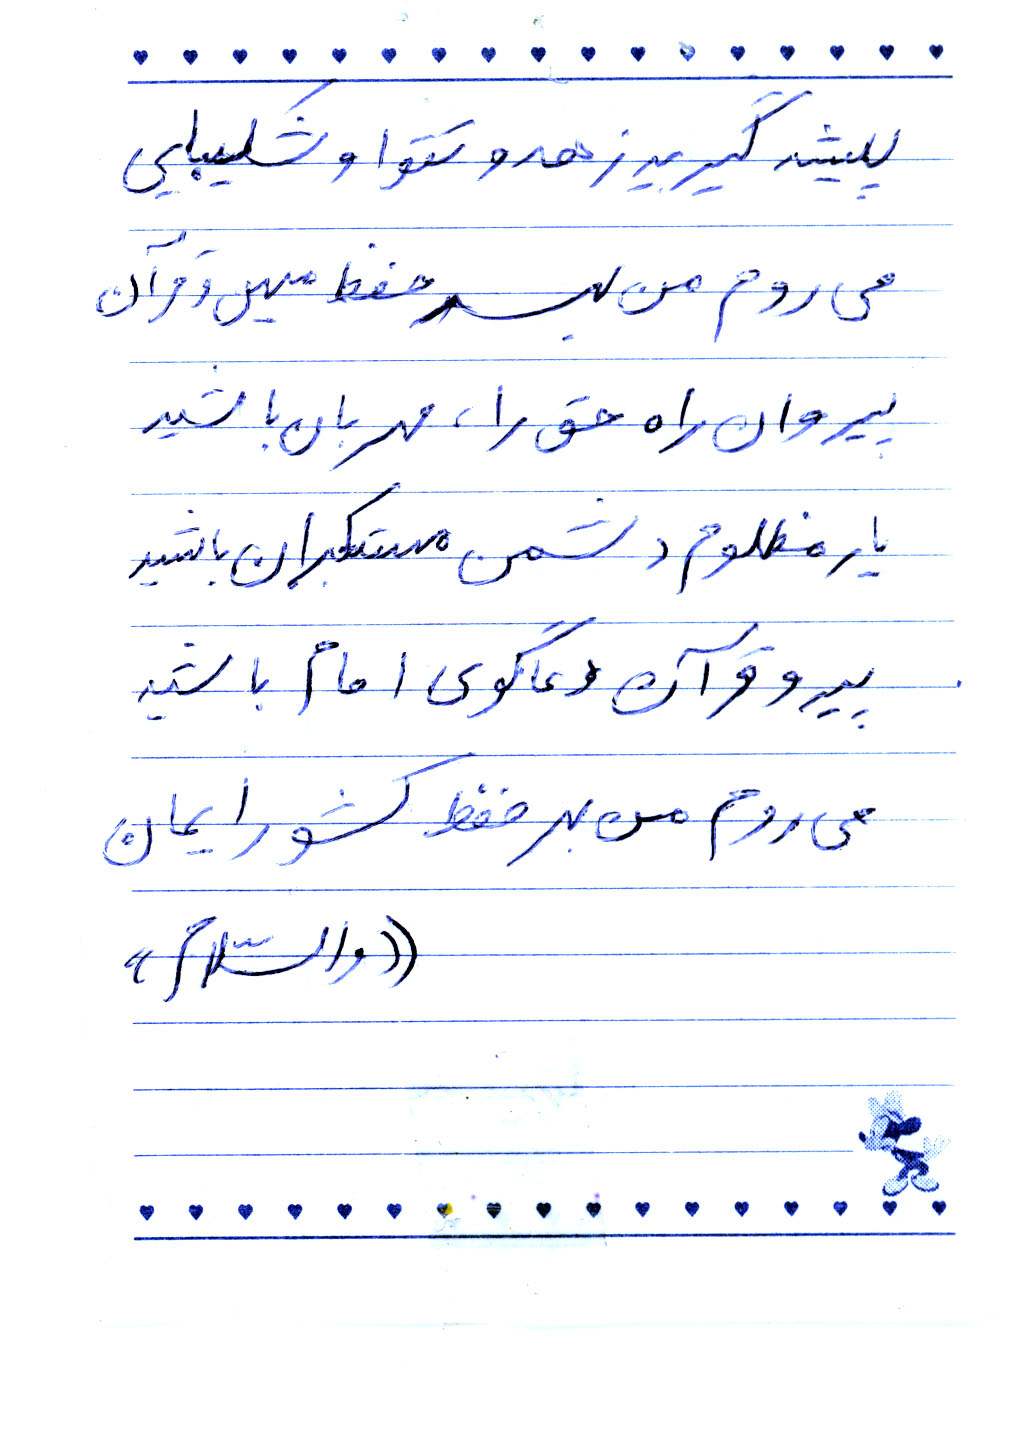 پیشه گیرید زهد و تقوا و شکیبایی
می روم من بهر حفظ میهن و قرآن
پیروان راه حق را، مهربان باشید
یار مظلوم دشمن مستکبران باشید
پیرو قرآن و دعاگوی امام باشید
می روم من بهر حفظ کشور ایمان
((والسّلام»